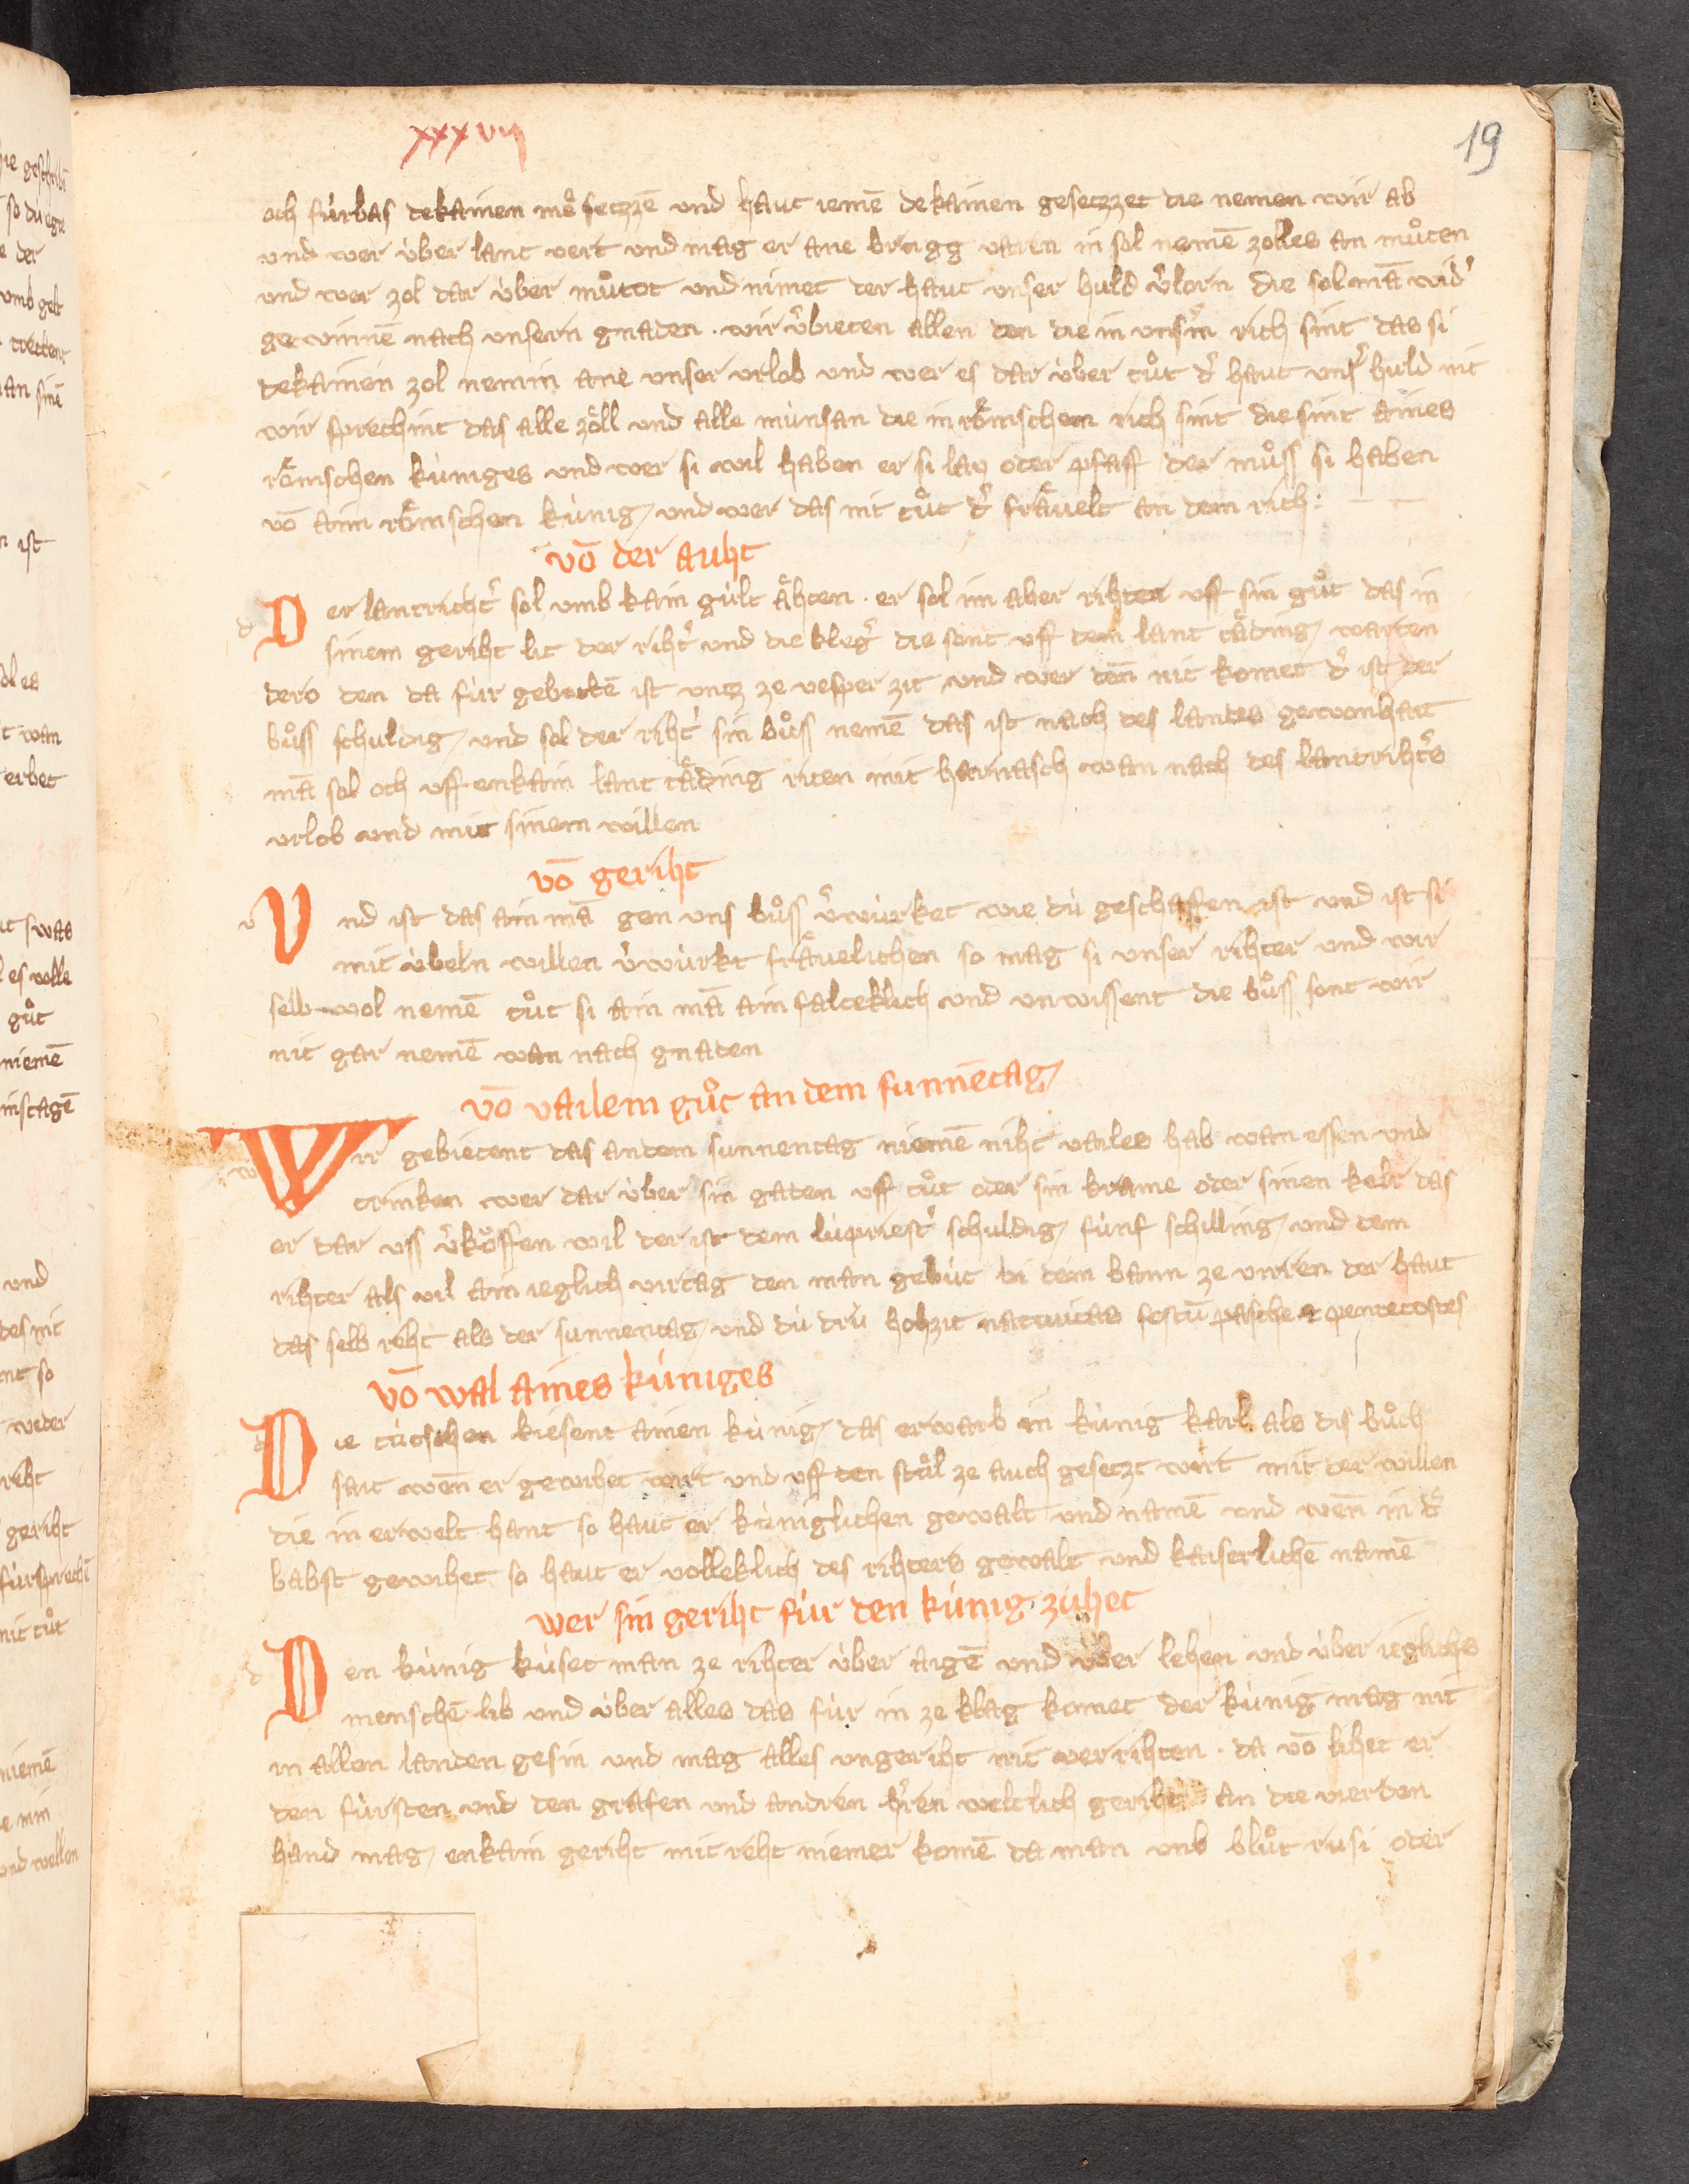 xxxvıȷ
19
och fúrbas dekainen mer̾ seczzē und haut iemē dekainen geseczzet die nemen wir ab
und wer úber lant vert und mag er ane brugg varen in sol nemē zolles an můten
und wer zol dar úber můtot und nimet der haut unser huld v̾lorn die sol mā wid̾
gewinnē nach unsern gnaden . wir v̾bieten allen den die in uns̾m rich sint das si
dekainen zol nemin ane unser urlob und wer es dar úber tůt d̾ haut uns̾ huld nit
wir sprechint das alle zöll und alle múnsan die in römschem rich sint die sint aines
römschen kúniges und wer si wil haben er si lay oder pfaff der můss si haben
vō aim römschen kúnig und wer das nit tůt d̾ frävelt an dem rich :
vō der auht
d
Der lantricht̾ sol umb kain gúlt ähten . er sol im aber rihten uff sin gůt das in
sinem geriht lit der riht̾ und die kleg̾ die sont uff dem lant täding warten
dero den da fúr gebottē ist untz ze vesper zit und wer deñ nit komet d̾ ist der
bůss schuldig und sol der riht̾ sin bůss nemē das ist nach des landes gewonhait
mā sol och uff enkain lant täding riten mit harnasch wan nach des lantriht̾s
urlob und mit sinem willen
vō geriht
v
Und ist das ain mā gen uns bůss v̾wúrket wie dú geschafen ist und ist si
mit úbeln willen v̾wúrkt frävelichen so mag si unser rihter und wir
selb wol nemē tůt si ain mā ainfalteklich und unwissent die bůss sont wir
nit gar nemē wan nach gnaden
vō vailem gůt an dem sunnētag
w
Wir gebietent das an dem sunnentag niemē niht vailes hab wan essen und
trinken wer dar úber sin gaden uff tůt oder sin krame oder sinen kelr das
er dar uss v̾köffen wil der ist dem lúpriest̾ schuldig fúnf schilling und dem
rihter als vil ain ieglich virtag den man gebút bi dem bann ze viren der haut
das selb reht als der sunnentag und dú drú hohzit nativitas festū pasche et pentecostes
vō wal aines kúniges
d
Die tútschen kiesent ainen kúnig das erwarb in kúnig karl als dis bůch
sait weñ er gewihet wirt und uff den stůl ze auch gesetzt wirt mit der willen
die in erwelt hant so haut er kúniglichen gewalt und namē und weñ in d̾
babst gewihet so haut er volleklich des rihters gewalt und kaiserlichē namē
wer sin geriht fúr den kúnig zúhet
d
Den kúnig kúset man ze rihter úber aigē und úber lehen und úber ieglichs
menschē lib und úber alles das fúr in ze klag komet der kúnig mag nit
in allen landen gesin und mag alles ungeriht nit verrihten . da vō lihet er
den fúrsten und den grafen und andren h̾ren weltlich geriht an die vierden
hand mag enkain geriht mit reht niemer komē da man umb blůt rúsi oder